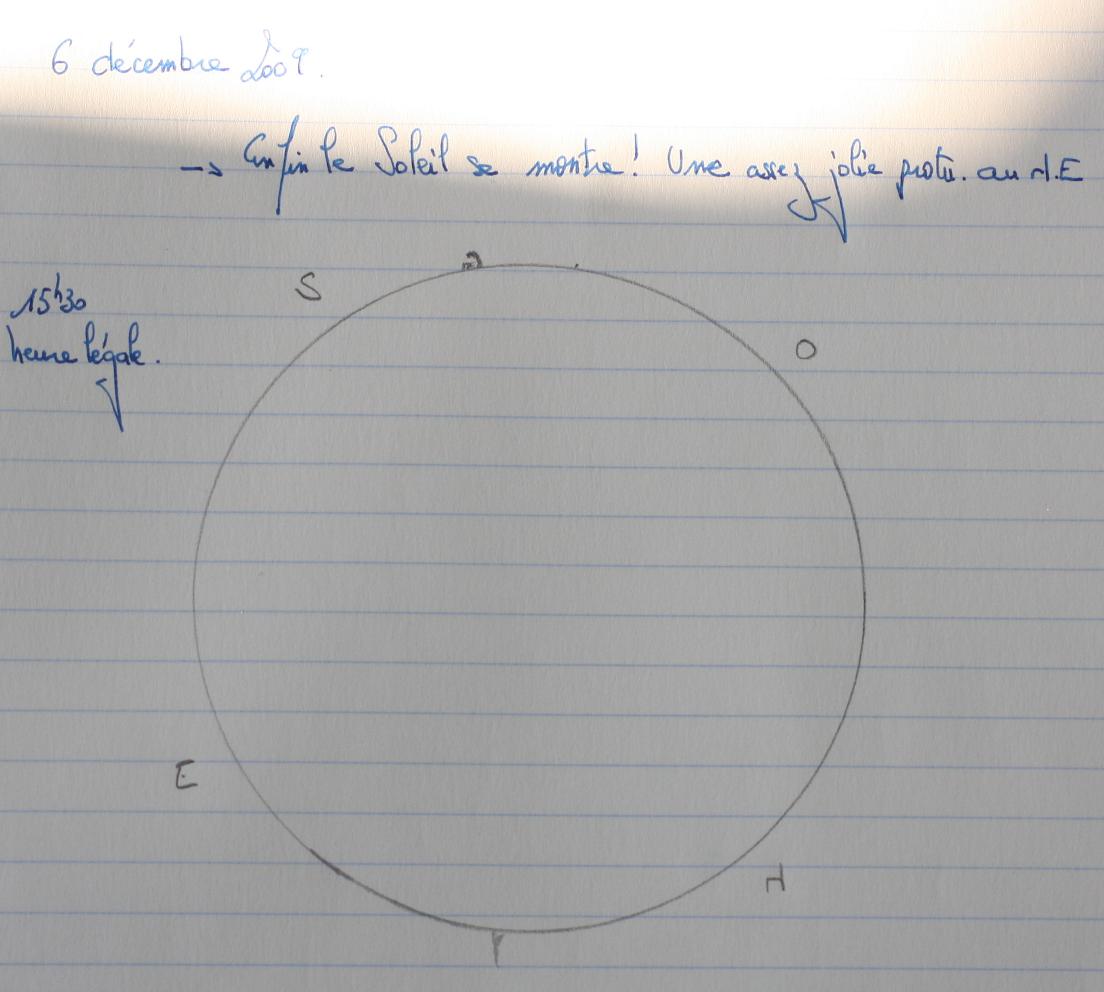 6 décembre 2009.
→ Enfin le Soleil se montre! Une assez jolie protu. au N.E
S
15h30
heure légale.
O
E
N